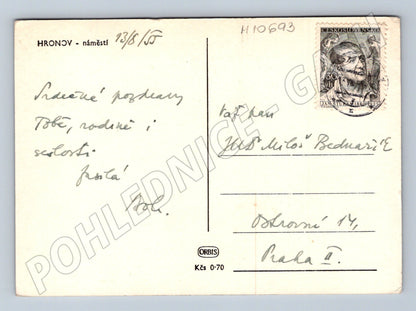 HRONOV - náměstí
13/8/55
H10693
ČESKOSLOVENSKO
Srdečné pozdravy
Tobě, rodině i
posílá
Vážpan
JUDr Miloš Bednařík
Ostrovní 14,
Praha II.
ORBIS
Kčs 0·70
POHLEDNICE-